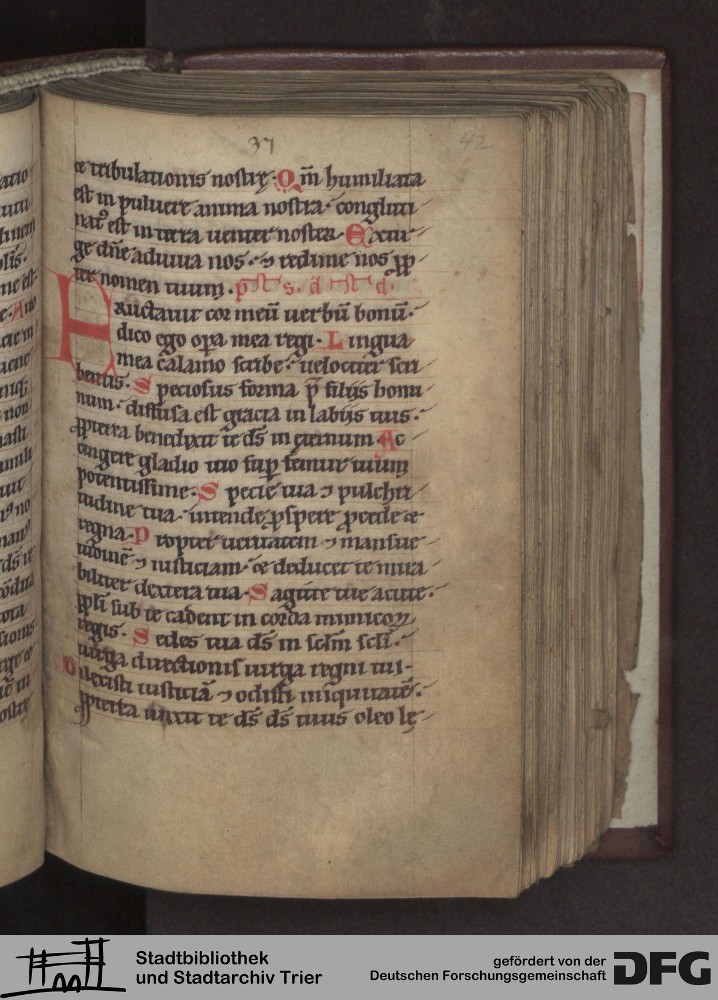 37
42
te tribulationis nostrę. Qm̄ humiliata
est in puluere anima nostra. congluti
nat᷒ est in terra uenter noster. Exur
ge dn̄e adiuua nos. ⁊ redime nos ꝓp
ter nomen tuum.
Eructauit cor meū uerbū bonū.
dico ego opa mea regi. Lingua
mea calamo scribe. uelociter scri
bentis. Speciosus forma p̄ filijs homi
num. diffusa est gracia in labijs tuis.
ꝓpterea benedixit te ds̄ in eternum. Ac
cingere gladio tuo sup femur tuum
potentissime. Specie tua ⁊ pulchri
tudine tua. intende ꝓspere ꝓcede et
regna. Propter ueritatem ⁊ mansue
tudinē ⁊ iusticiam. et deducet te mira
biliter dextera tua. Sagitte tue acute.
ppl̄i sub te cadent in corda inimicoꝝ
regis. Sedes tua ds̄ in sclm̄ scl̄i.
uirga directionis uirga regni tui.
Dilexisti iusticiā ⁊ odisti iniquitatē.
ꝓpterea unxit te ds̄ ds̄ tuus oleo lę
Stadtbibliothek
und Stadtarchiv Trier
gefördert von der
Deutschen Forschungsgemeinschaft
DFG